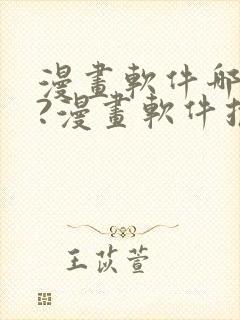 漫畫軟件哪
?漫畫軟件推
王苡萱